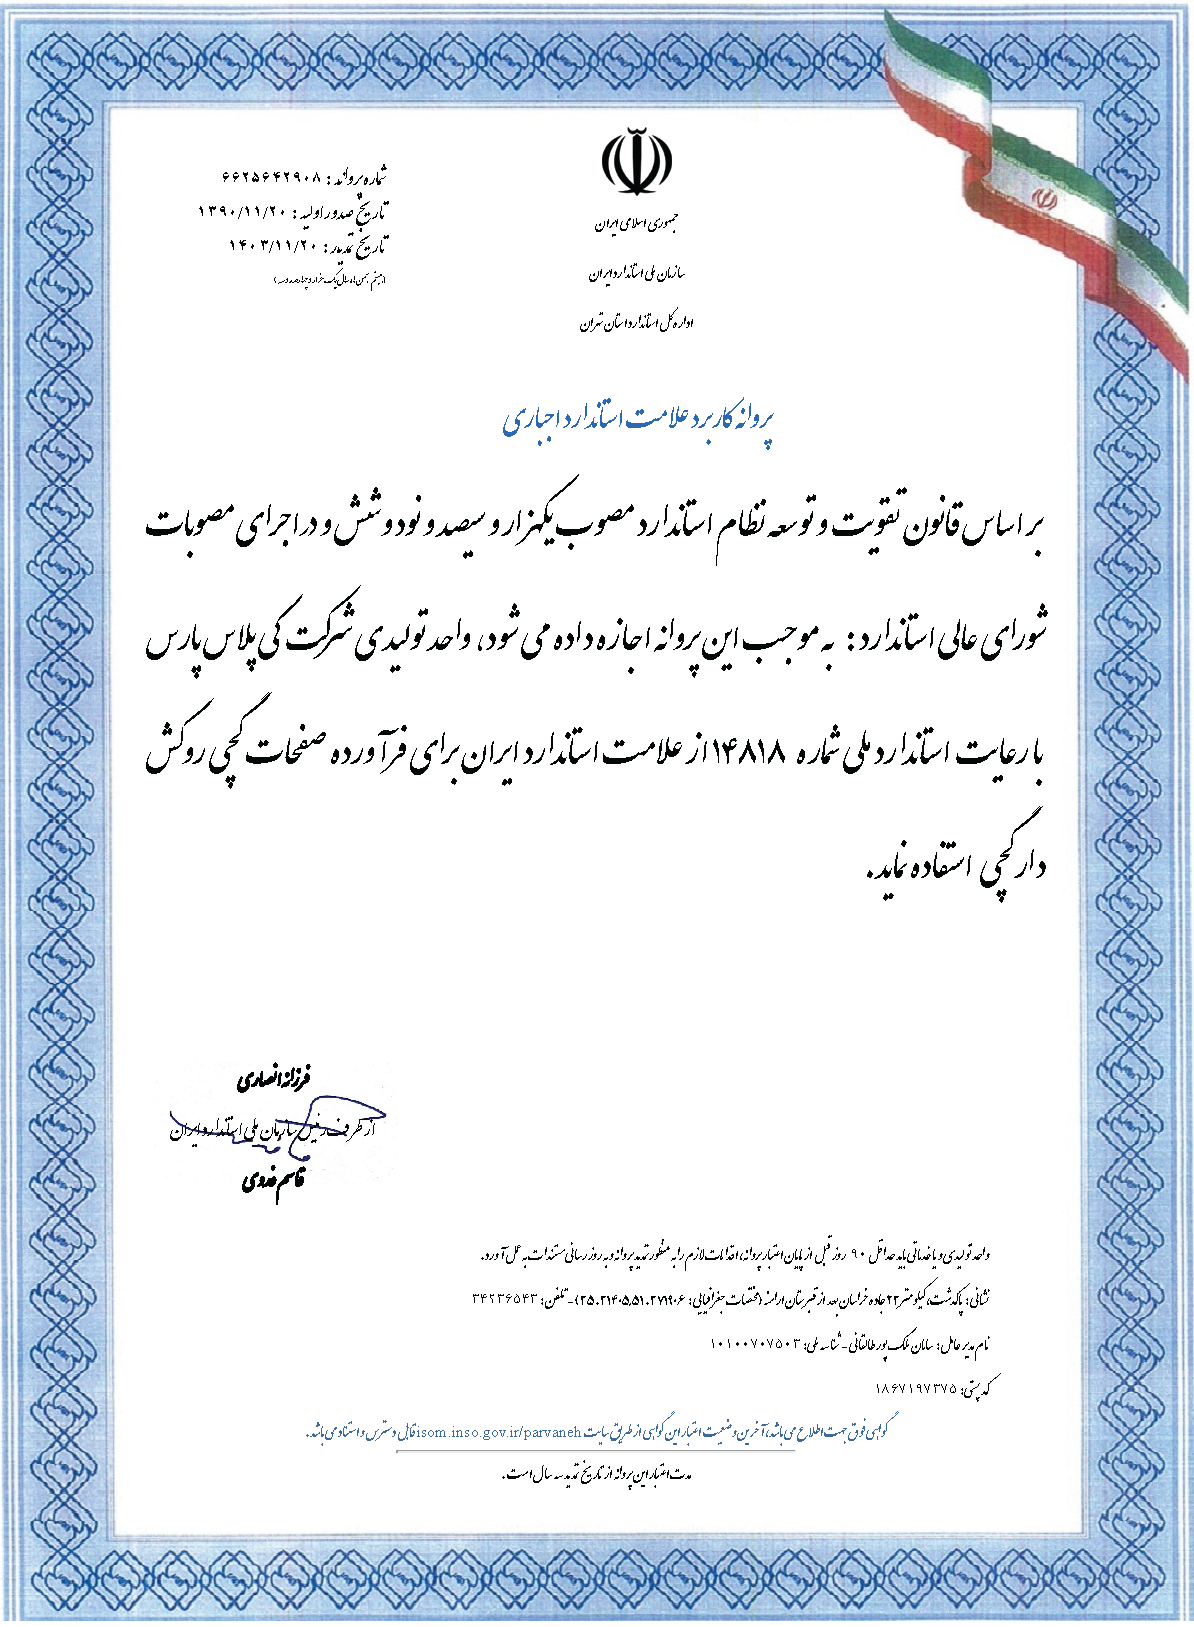 جمهوری اسلامی ایران
سازمان ملی استاندارد ایران
اداره کل استاندارد استان تهران
شماره پروانه : ۶۶۲۵۶۴۲۹۰۸
تاریخ صدور اولیه : ۱۳۹۰/۱۱/۲۰
تاریخ تمدید : ۱۴۰۳/۱۱/۲۰
پروانه کاربرد علامت استاندارد اجباری
بر اساس قانون تقویت و توسعه نظام استاندارد مصوب یکهزار و سیصد و نود و شش و در اجرای مصوبات
شورای عالی استاندارد : به موجب این پروانه اجازه داده می شود، واحد تولیدی شرکت کی پلاس پارس
با رعایت استاندارد ملی شماره ۱۴۸۱۸ از علامت استاندارد ایران برای فرآورده صفحات گچی روکش
دار گچی استفاده نماید.
فرزانه انصاری
از طرف رئیس سازمان ملی استاندارد ایران
قاسم
واحد تولیدی و یا خدماتی باید حداقل ۹۰ روز قبل از پایان اعتبار پروانه، اقدامات لازم را به منظور تمدید پروانه و به روز رسانی مستندات به عمل آورد.
نشانی: پاکدشت، کیلومتر ۲۲ جاده خراسان بعد از قبرستان ارامنه (مختصات جغرافیایی: ۳۵.۲۱۴۰۵،۵۱.۲۷۱۹۰۶) - تلفن: ۳۴۲۳۶۵۴۳
نام مدیر عامل: سامان ملک پور طالقانی - شناسه ملی: ۱۰۱۰۰۷۰۷۵۰۳
کد پستی: ۱۸۶۷۱۹۷۳۷۵
گواهی فوق جهت اطلاع می باشد، آخرین وضعیت اعتبار این گواهی از طریق سایت isom.inso.gov.ir/parvaneh قابل دسترس و استناد می باشد.
مدت اعتبار این پروانه از تاریخ تمدید سه سال است.